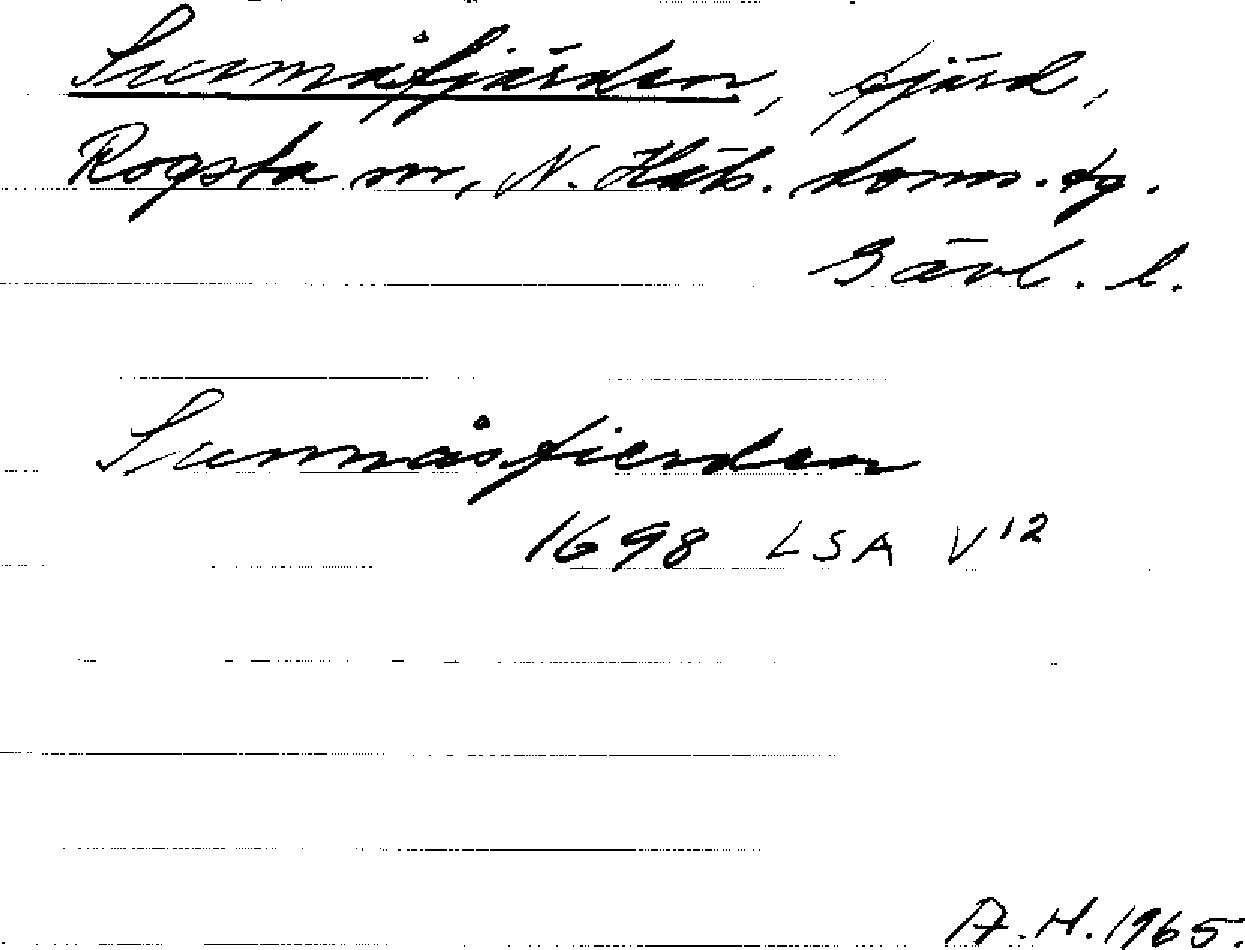 Sunnåfjärden, fjärd,
Rogsta sn, N. Häls. doms. sg.
Gävl. l.
Sunnåsfierden
1698 LSA V12
A.H. 1965.